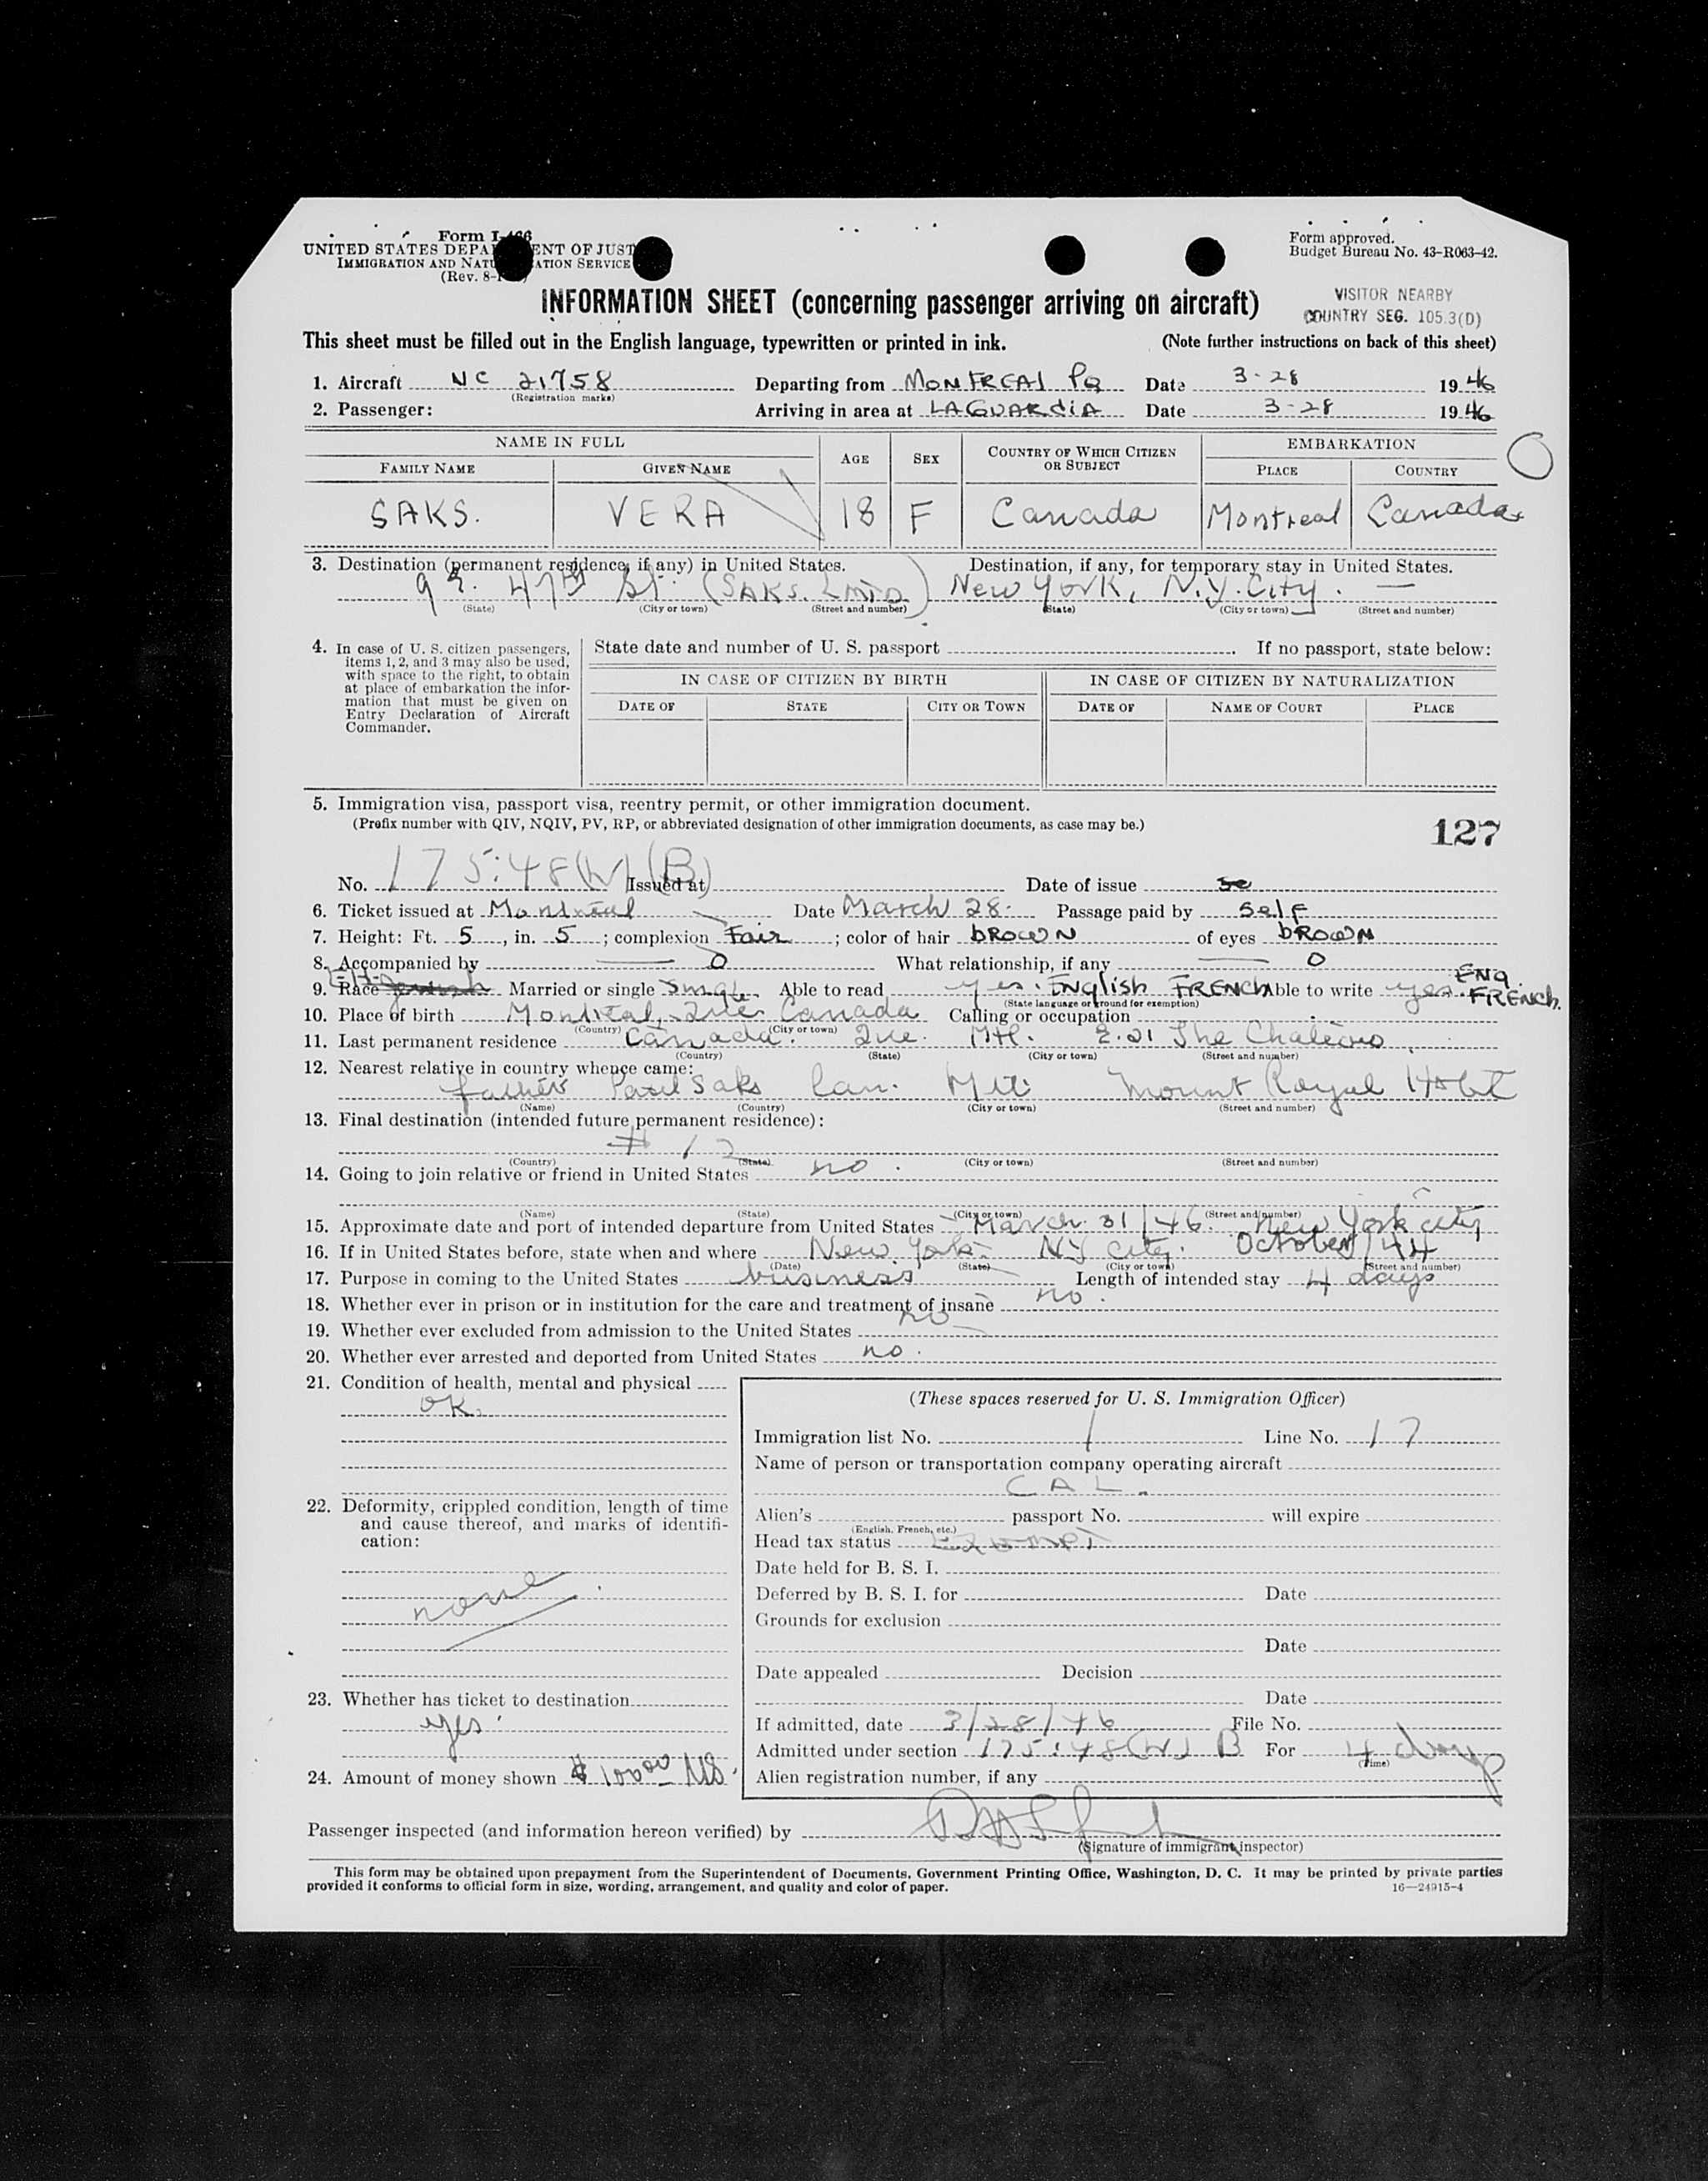 Form I-466
UNITED STATES DEPA ENT OF JUST
IMMIGRATION AND NATU ATION SERVICE
(Rev. 8-1
Form approved.
Budget Bureau No. 43-R063-42.
INFORMATION SHEET (concerning passenger arriving on aircraft)
VISITOR NEARBY
COUNTRY SEG. 105.3(D)
This sheet must be filled out in the English language, typewritten or printed in ink. (Note further instructions on back of this sheet)
1. Aircraft NC 21758 Departing from MONTREAL PQ Date 3-28 1946
(Registration marks)
2. Passenger: Arriving in area at LAGUARdiA Date 3-28 1946
NAME IN FULL AGE SEX COUNTRY OF WHICH CITIZEN OR SUBJECT EMBARKATION
FAMILY NAME GIVEN NAME PLACE COUNTRY
SAKS. VERA 18 F Canada Montreal Canada
3. Destination (permanent residence, if any) in United States. Destination, if any, for temporary stay in United States.
9 E. 47th St. (SAKS. LMTD) New York, N.Y. City.
(State) (City or town) (Street and number) (State) (City or town) (Street and number)
4. In case of U. S. citizen passengers, items 1, 2, and 3 may also be used, with space to the right, to obtain at place of embarkation the information that must be given on Entry Declaration of Aircraft Commander.
State date and number of U. S. passport . If no passport, state below:
IN CASE OF CITIZEN BY BIRTH IN CASE OF CITIZEN BY NATURALIZATION
DATE OF STATE CITY OR TOWN DATE OF NAME OF COURT PLACE
5. Immigration visa, passport visa, reentry permit, or other immigration document.
(Prefix number with QIV, NQIV, PV, RP, or abbreviated designation of other immigration documents, as case may be.)
127
No. 175:48(W)(B) Issued at Date of issue se
6. Ticket issued at Montreal Date March 28. Passage paid by self
7. Height: Ft. 5, in. 5; complexion Fair; color of hair bROWN of eyes bROWN
8. Accompanied by 0 What relationship, if any 0
9. Race Jewish Married or single Single Able to read yes. ENglish FRENCH Able to write yes. ENG. FRENCH.
(State language or ground for exemption)
10. Place of birth Montreal, Que. Canada Calling or occupation
(Country) (City or town)
11. Last permanent residence Canada. Que. Mtl. E.21 The
(Country) (State) (City or town) (Street and number)
12. Nearest relative in country whence came:
father Paul Saks Can. Mtl. Mount Royal Hotel
(Name) (Country) (City or town) (Street and number)
13. Final destination (intended future permanent residence):
# 12
(Country) (State) (City or town) (Street and number)
14. Going to join relative or friend in United States no.
(Name) (State) (City or town) (Street and number)
15. Approximate date and port of intended departure from United States March 31/46. New York city
16. If in United States before, state when and where New York NY city. October/44
(Date) (State) (City or town) (Street and number)
17. Purpose in coming to the United States business Length of intended stay 4 days
18. Whether ever in prison or in institution for the care and treatment of insane no.
19. Whether ever excluded from admission to the United States no
20. Whether ever arrested and deported from United States no.
21. Condition of health, mental and physical
OK.
22. Deformity, crippled condition, length of time and cause thereof, and marks of identification:
none
23. Whether has ticket to destination
yes
24. Amount of money shown $ 100.00 US.
(These spaces reserved for U. S. Immigration Officer)
Immigration list No. 1 Line No. 17
Name of person or transportation company operating aircraft
CAL.
Alien's passport No. will expire
(English, French, etc.)
Head tax status Exempt
Date held for B. S. I.
Deferred by B. S. I. for Date
Grounds for exclusion
Date
Date appealed Decision
Date
If admitted, date 3/28/46 File No.
Admitted under section 175:48(W) B For 4 days
(Time)
Alien registration number, if any
Passenger inspected (and information hereon verified) by
(Signature of immigrant inspector)
This form may be obtained upon prepayment from the Superintendent of Documents, Government Printing Office, Washington, D. C. It may be printed by private parties
provided it conforms to official form in size, wording, arrangement, and quality and color of paper.
16—24915-4